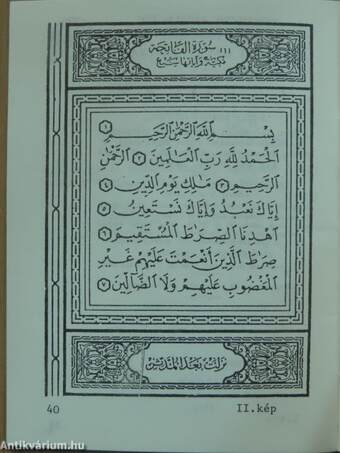 (١) سورة الفاتحة
مكية وآياتها سبع
بِسْمِ اللَّهِ الرَّحْمَٰنِ الرَّحِيمِ ١
الْحَمْدُ لِلَّهِ رَبِّ الْعَالَمِينَ ٢ الرَّحْمَٰنِ
الرَّحِيمِ ٣ مَالِكِ يَوْمِ الدِّينِ ٤
إِيَّاكَ نَعْبُدُ وَإِيَّاكَ نَسْتَعِينُ ٥
اهْدِنَا الصِّرَاطَ الْمُسْتَقِيمَ ٦
صِرَاطَ الَّذِينَ أَنْعَمْتَ عَلَيْهِمْ غَيْرِ
الْمَغْضُوبِ عَلَيْهِمْ وَلَا الضَّالِّينَ ٧
نزلت بعد المدثر
40 II.kép
Antikvárium.hu